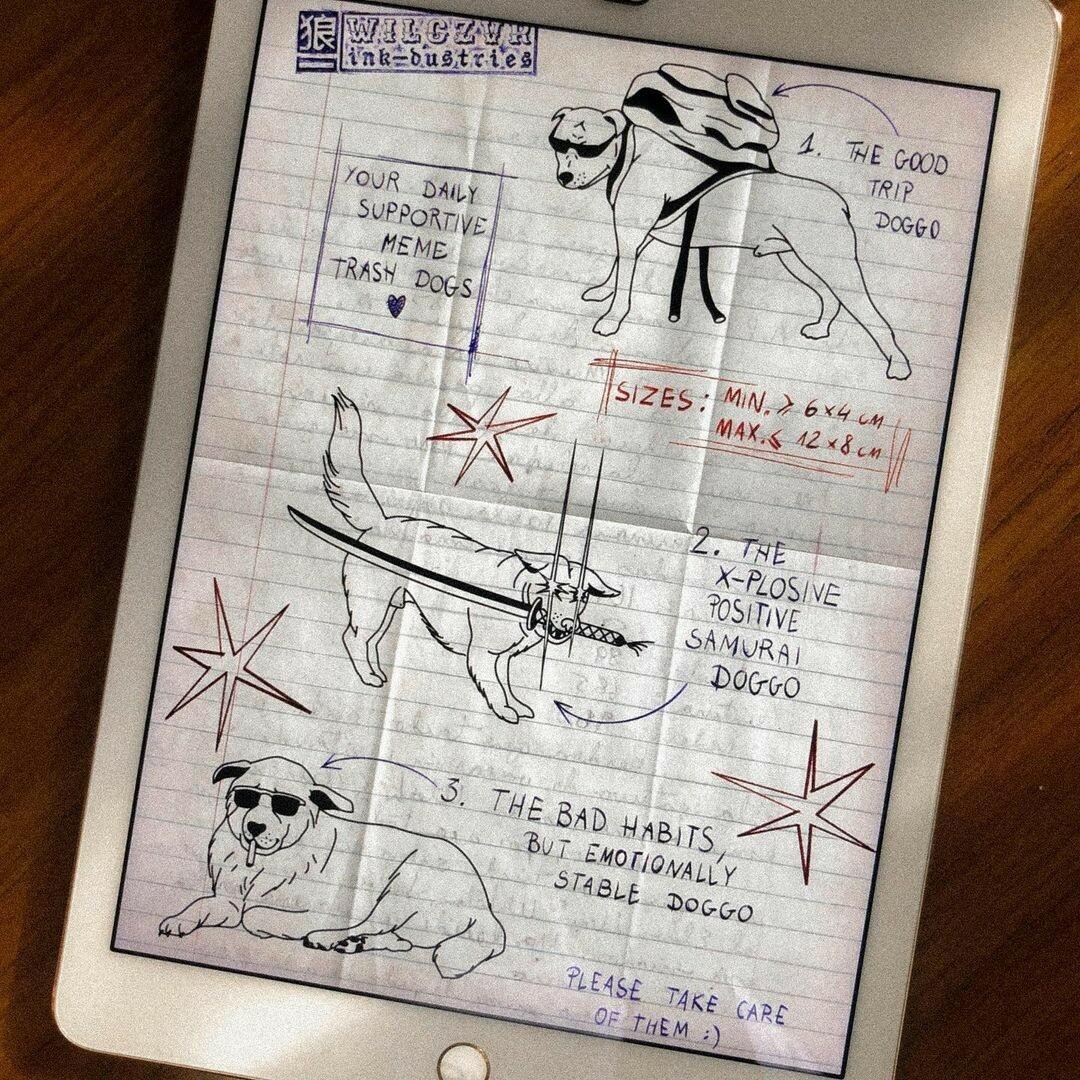 狼 WILCZVR
ink-dustries
YOUR DAILY
SUPPORTIVE
MEME
TRASH DOGS
1. THE GOOD
TRIP
DOGGO
SIZES: MIN. ≥ 6×4 CM
MAX. ≤ 12×8 CM
2. THE
X-PLOSIVE
POSITIVE
SAMURAI
DOGGO
3. THE BAD HABITS,
BUT EMOTIONALLY
STABLE DOGGO
PLEASE TAKE CARE
OF THEM :)